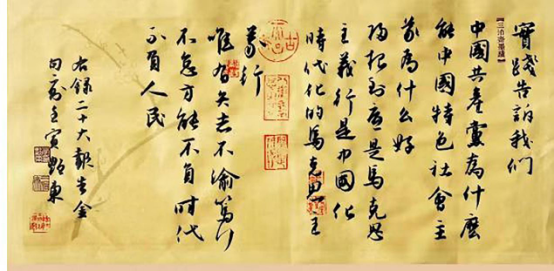 實踐告訴我們
中國共產黨為什麼
能中國特色社會主
義為什么好
歸根到底是馬克思
主義行是中國化
時代化的馬克思主
義行
唯有矢志不渝篤行
不怠方能不負時代
不負人民
右錄二十大報告金
句壬寅